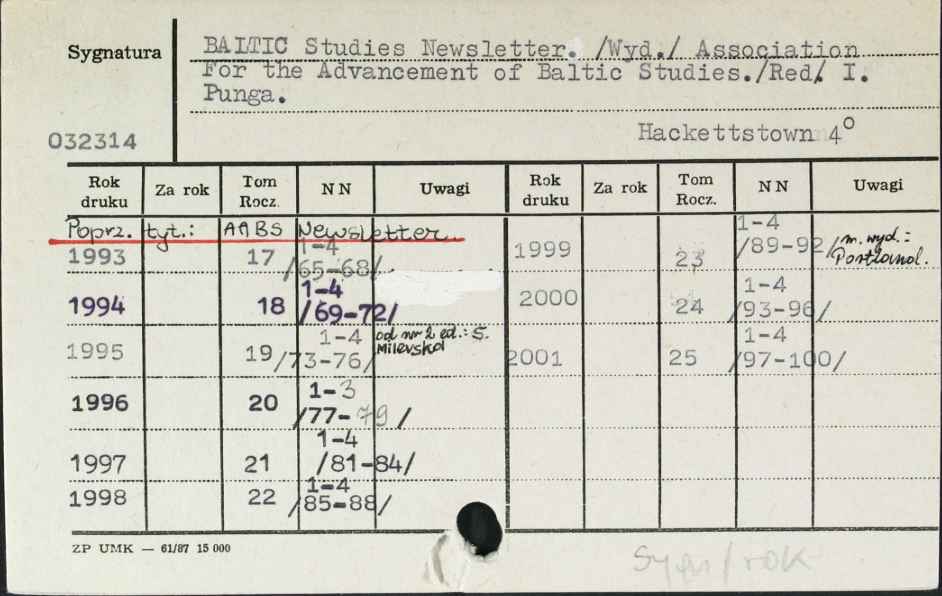 Sygnatura
BALTIC Studies Newsletter. /Wyd./ Association
For the Advancement of Baltic Studies./Red/. I.
Punga.
032314
Hackettstown 4°
Rok druku Za rok Tom Rocz. NN Uwagi Rok druku Za rok Tom Rocz. NN Uwagi
Poprz. tyt.: AABS Newsletter
1993 17 1-4 /65-68/
1994 18 1-4 /69-72/
1995 19 1-4 /73-76/ od nr 2 ed.: S. Milevska
1996 20 1-3 /77-79/
1997 21 1-4 /81-84/
1998 22 1-4 /85-88/
1999 23 1-4 /89-92/ m. wyd.: Portland.
2000 24 1-4 /93-96/
2001 25 1-4 /97-100/
ZP UMK — 61/87 15 000
Sygn/rok